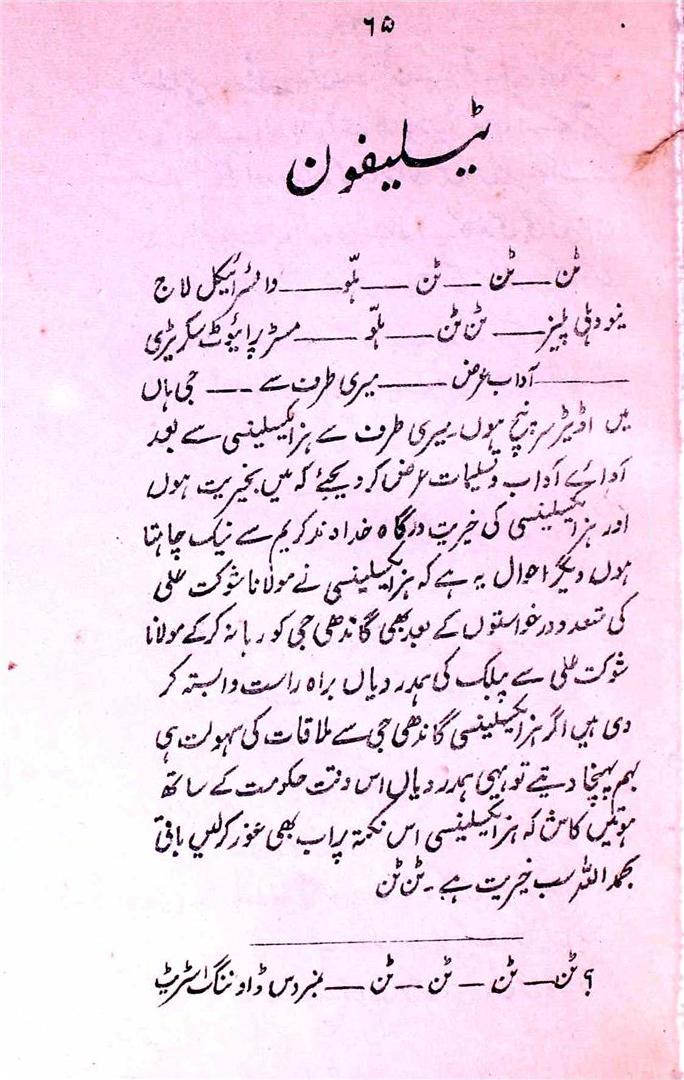 ۶۵
ٹیلیفون
ٹن — ٹن — ٹن — ہلّو —— وائسرائیکل لاج
نیو دہلی پلیز —— ٹن ٹن —— ہلّو —— مسٹر پرائیوٹ سکریٹری
—— آداب عرض —— میری طرف سے —— جی ہاں
میں اڈیٹر سرپنچ ہوں۔ میری طرف سے ہزایکسیلینسی سے بعد
آدائے آداب و تسلیمات عرض کر دیجئے کہ میں بخیریت ہوں
اور ہزایکسیلینسی کی خیریت درگاہ خداوند کریم سے نیک چاہتا
ہوں دیگر احوال یہ ہے کہ ہزایکسیلینسی نے مولانا شوکت علی
کی متعدد درخواستوں کے بعد بھی گاندھی جی کو رہا نہ کرکے مولانا
شوکت علی سے پبلک کی ہمدردیاں براہ راست وابستہ کر
دی ہیں اگر ہزایکسیلینسی گاندھی جی سے ملاقات کی سہولت ہی
بہم پہنچا دیتے تو یہی ہمدردیاں اس وقت حکومت کے ساتھ
ہوتیں کاش کہ ہزایکسیلینسی اس نکتہ پر اب بھی غور کرلیں باقی
بحمد اللہ سب خیریت ہے۔ ٹن ٹن
؟ ٹن — ٹن — ٹن — ٹن — نمبر دس ڈاوننگ اسٹریٹ